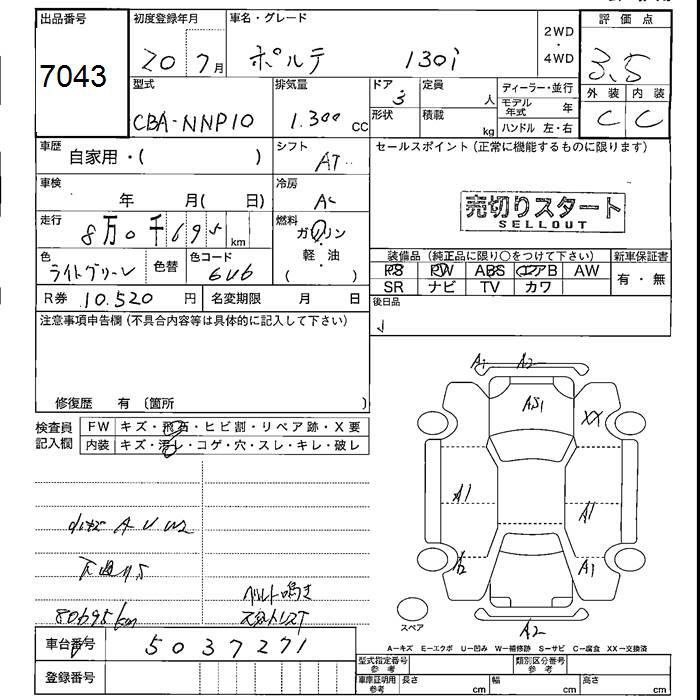 出品番号
7043
初度登録年月
20 7月
車名・グレード
ポルテ 130i
2WD
・
4WD
評価点
3.5
外装 内装
C C
型式
CBA-NNP10
排気量
1.300 CC
ドア
3
形状
定員
人
積載
kg
ディーラー・並行
モデル年式 年
ハンドル 左・右
車歴
自家用・( )
シフト
AT
セールスポイント (正常に機能するものに限ります)
売切りスタート
SELLOUT
車検
年 月( 日)
冷房
AC
走行
8万0千695 km
燃料
ガソリン
・
軽・油
( )
色
ライトグリーン
色替
色コード
6U6
装備品 (純正品に限り○をつけて下さい)
PS PW ABS エアB AW
SR ナビ TV カワ
新車保証書
有・無
R券 10.520 円
名変期限 月 日
後日品
注意事項申告欄 (不具合内容等は具体的に記入して下さい)
修復歴 有 〔箇所 〕
検査員
記入欄
FW キズ・飛石・ヒビ割・リペア跡・X要
内装 キズ・汚レ・コゲ・穴・スレ・キレ・破レ
A U W2
80695km
ベルト鳴き
A1 A2
AS1
XX
A1
A1
A2
A1
A2
スペア
A−キズ E−エクボ U−凹み W−補修跡 S−サビ C−腐食 XX−交換済
車台番号
5037271
登録番号
型式指定番号
参考
類別区分番号
参考
車庫証明用
参考
長さ cm
幅 cm
高さ cm